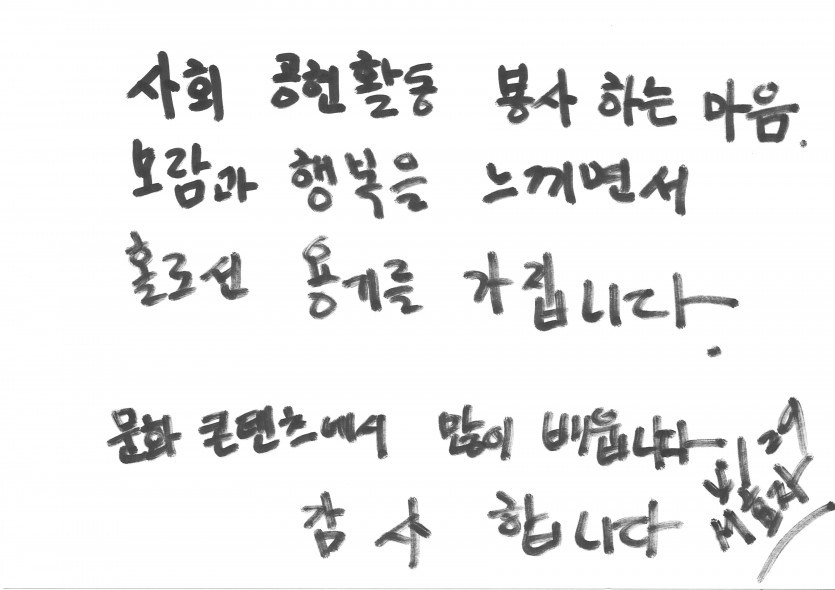 사회 공헌활동 봉사 하는 마음.
보람과 행복을 느끼면서
홀로선 용기를 가집니다.
문화 콘텐츠에서 많이 배웁니다
감사 합니다